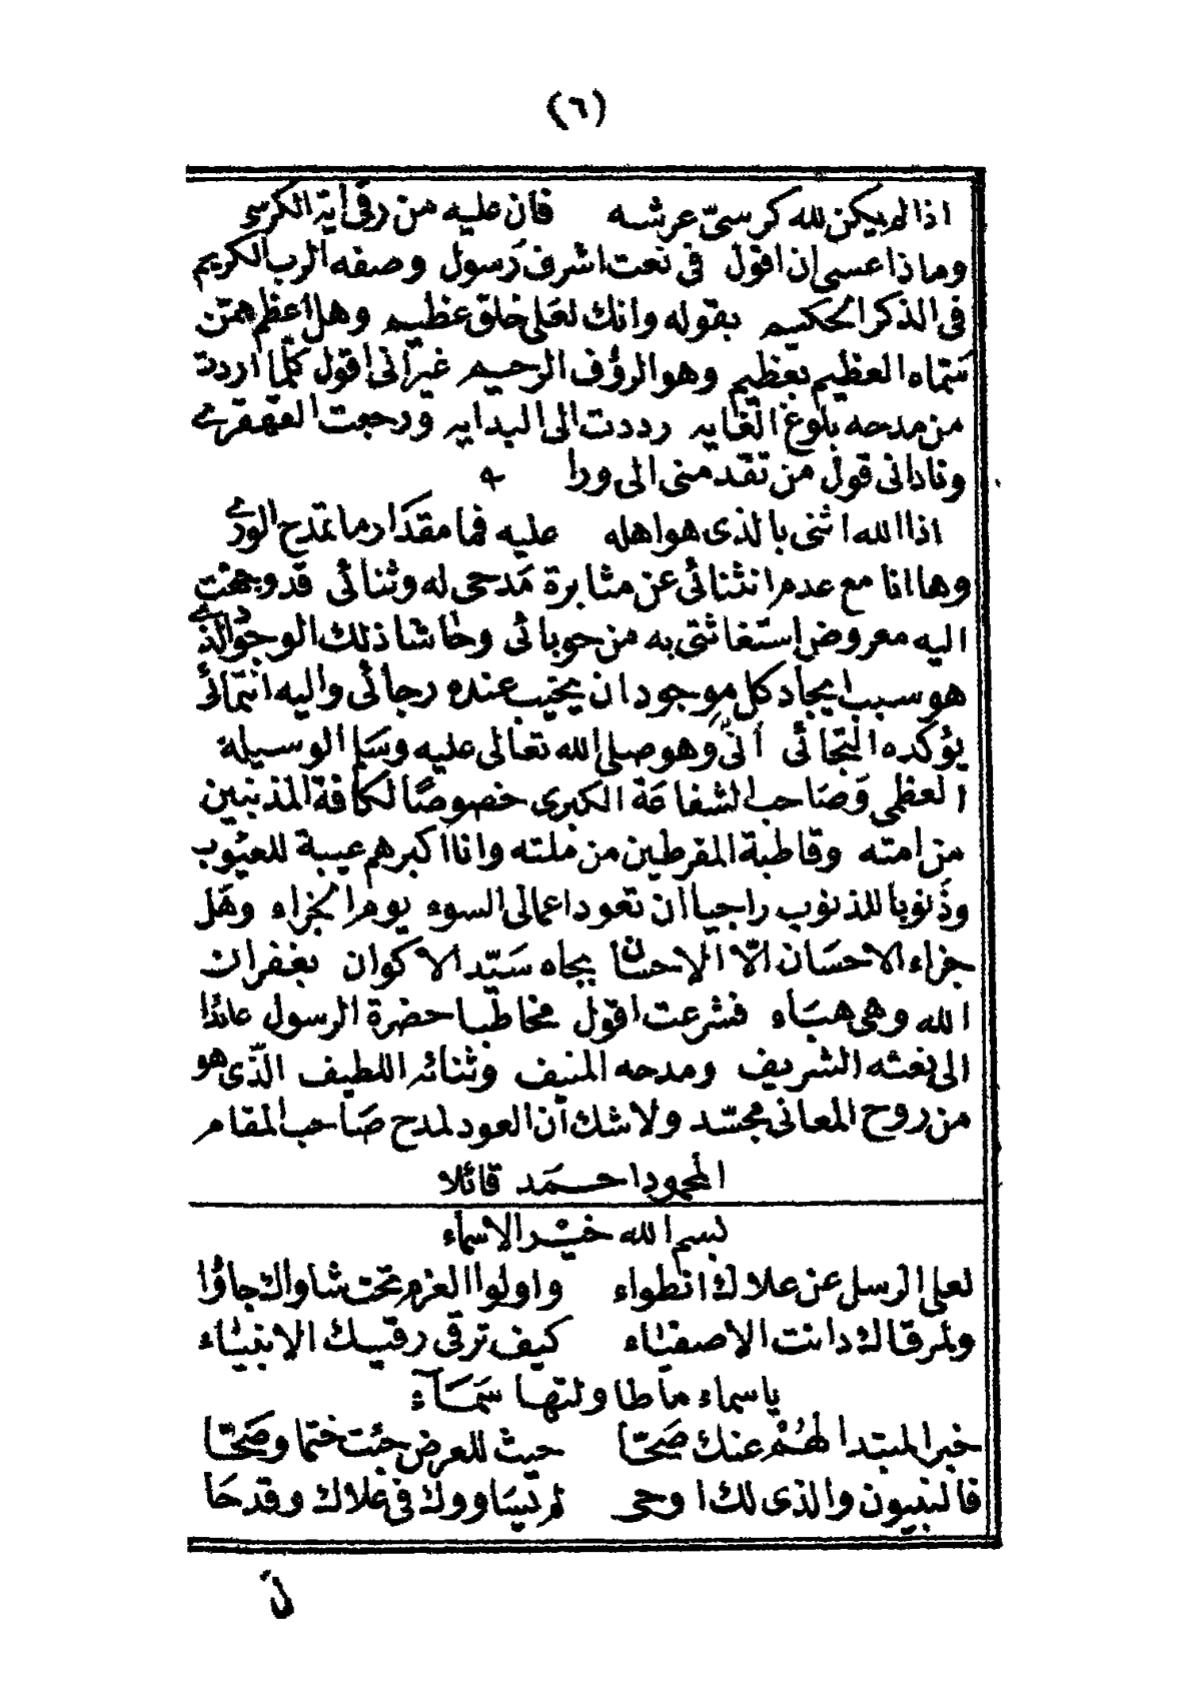 (٦)
اذا لم يكن لله كرسىّ عرشه فان عليه من رقى اية الكرسي
وماذا عسى ان اقول فى نعت اشرف رسول وصفه الرب الكريم
فى الذكر الحكيم بقوله وانك لعلى خلق عظيم وهل اعظم ممن
سماه العظيم بعظيم وهو الرؤف الرحيم غير انى اقول كلما اردت
من مدحه بلوغ الغايه رددت الى البدايه ورجعت القهقرے
ونادانى قول من تقدمنى الى ورا
اذا الله اثنى بالذى هو اهله عليه فما مقدار ما تمدح الورے
وها انا مع عدم انثنائى عن مثابرة مدحى له وثنائى قد وجهت
اليه معروض استغاثتى به من حوبائى وحاشا ذلك الوجود الذے
هو سبب ايجاد كل موجود ان يخيب عنده رجائى واليه انتمائى
يؤكده التجائى انّى وهو صلى الله تعالى عليه وسلم الوسيلة
العظمى وصاحب الشفاعة الكبرى خصوصًا لكافة المذنبين
من امته وقاطبة المفرطين من ملته وانا اكبرهم عيبة للعيوب
وذنوبا للذنوب راجيا ان تعود اعمالى السوء يوم الجزاء وهل
جزاء الاحسان الّا الاحسان بجاه سيّد الاكوان بغفران
الله وهى هباء فشرعت اقول مخاطبا حضرة الرسول عائدا
الى نعته الشريف ومدحه المنيف وثنائه اللطيف الذّى هو
من روح المعانى مجسّد ولا شك أن العود لمدح صاحب المقام
المحمود احمد قائلا
بسم الله خير الاسماء
لعلى الرسل عن علاك انطواء واولوا العزم تحت شاواك جاؤا
ولمرقاك دانت الاصفياء كيف ترقى رقيك الانبياء
ياسماء ما طاولتها سَمَآء
خبر المبتدا لهُمْ عنك صَحّا حيث للعرض جئت ختما وصحّا
فالنبيون والذى لك اوحى لم يساووك فى علاك وقد حَا
ل